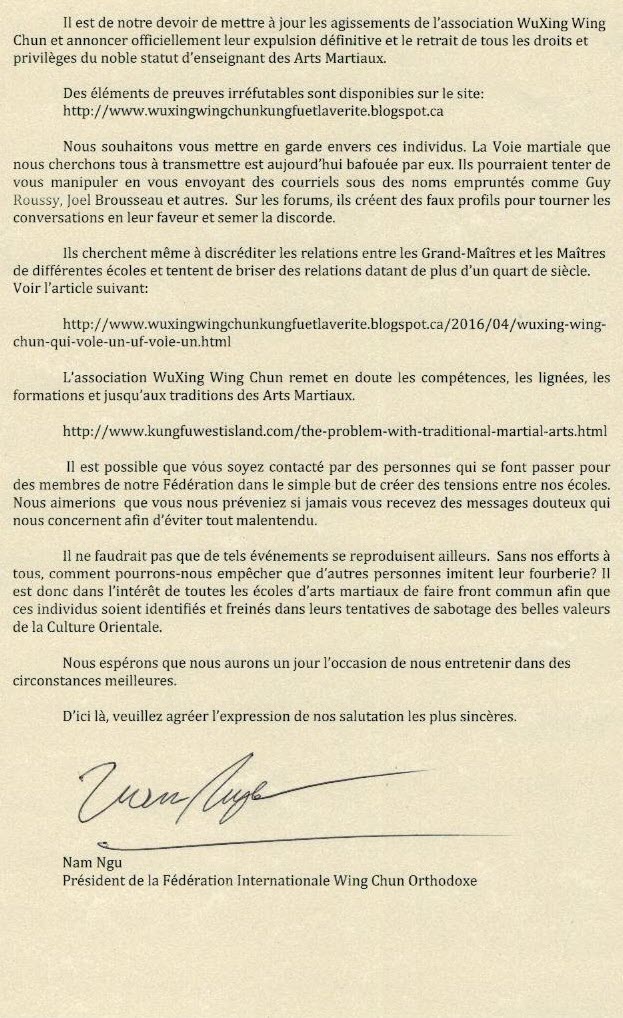 Il est de notre devoir de mettre à jour les agissements de l'association WuXing Wing
Chun et annoncer officiellement leur expulsion définitive et le retrait de tous les droits et
privilèges du noble statut d'enseignant des Arts Martiaux.
Des éléments de preuves irréfutables sont disponibles sur le site:
http://www.wuxingwingchunkungfuetlaverite.blogspot.ca
Nous souhaitons vous mettre en garde envers ces individus. La Voie martiale que
nous cherchons tous à transmettre est aujourd'hui bafouée par eux. Ils pourraient tenter de
vous manipuler en vous envoyant des courriels sous des noms empruntés comme Guy
Roussy, Joel Brousseau et autres. Sur les forums, ils créent des faux profils pour tourner les
conversations en leur faveur et semer la discorde.
Ils cherchent même à discréditer les relations entre les Grand-Maîtres et les Maîtres
de différentes écoles et tentent de briser des relations datant de plus d'un quart de siècle.
Voir l'article suivant:
http://www.wuxingwingchunkungfuetlaverite.blogspot.ca/2016/04/wuxing-wing-
chun-qui-vole-un-uf-vole-un.html
L'association WuXing Wing Chun remet en doute les compétences, les lignées, les
formations et jusqu'aux traditions des Arts Martiaux.
http://www.kungfuwestisland.com/the-problem-with-traditional-martial-arts.html
Il est possible que vous soyez contacté par des personnes qui se font passer pour
des membres de notre Fédération dans le simple but de créer des tensions entre nos écoles.
Nous aimerions que vous nous préveniez si jamais vous recevez des messages douteux qui
nous concernent afin d'éviter tout malentendu.
Il ne faudrait pas que de tels événements se reproduisent ailleurs. Sans nos efforts à
tous, comment pourrons-nous empêcher que d'autres personnes imitent leur fourberie? Il
est donc dans l'intérêt de toutes les écoles d'arts martiaux de faire front commun afin que
ces individus soient identifiés et freinés dans leurs tentatives de sabotage des belles valeurs
de la Culture Orientale.
Nous espérons que nous aurons un jour l'occasion de nous entretenir dans des
circonstances meilleures.
D'ici là, veuillez agréer l'expression de nos salutation les plus sincères.
Nam Ngu
Président de la Fédération Internationale Wing Chun Orthodoxe